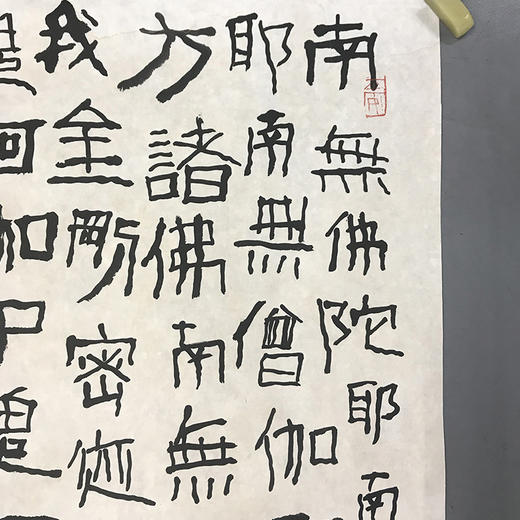 南無佛陀耶南
耶南無僧伽
方諸佛南無
我金剛密迹